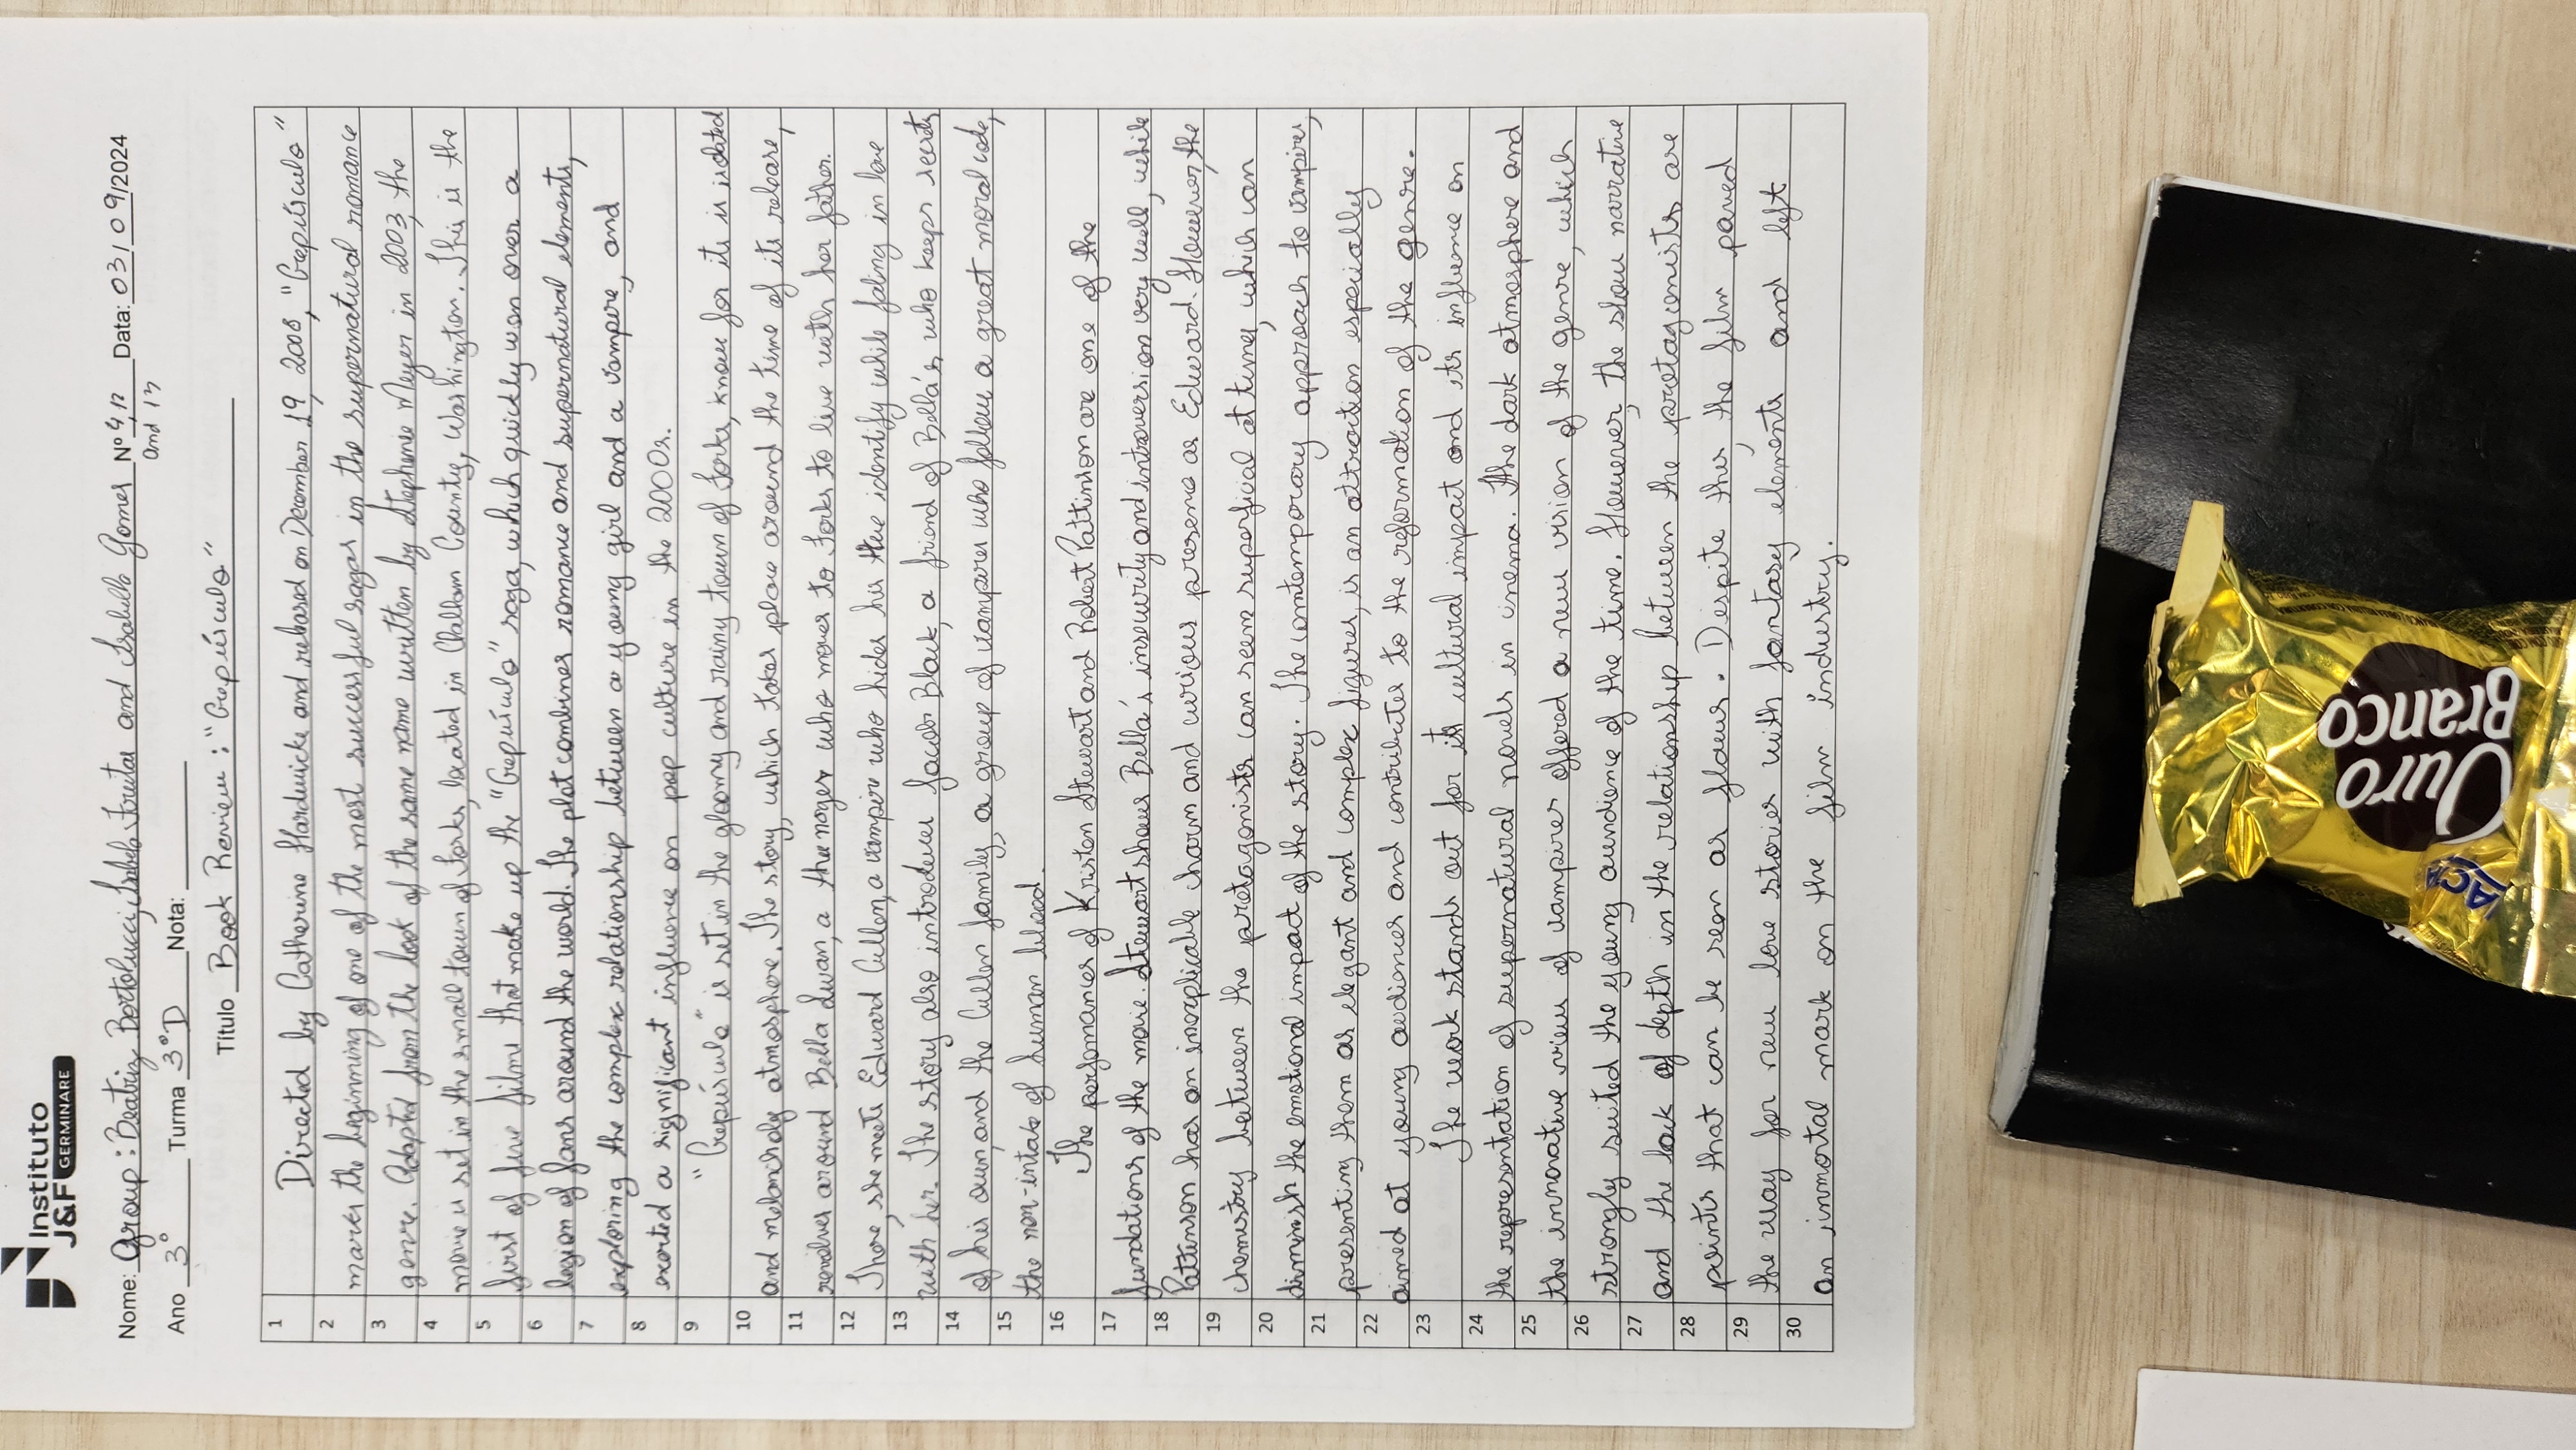 Instituto
J&F GERMINARE
Nome: Group: Beatriz Bortolucci, Isabela Freitas and Isabella Gomes Nº 4, 12 Data: 03/09/2024
and 13
Ano 3° Turma 3°D Nota:
Título Book Review: "Crepúsculo"
1 Directed by Catherine Hardwicke and released on December 19, 2008, "Crepúsculo"
2 marks the beginning of one of the most successful sagas in the supernatural romance
3 genre. Adapted from the book of the same name written by Stephenie Meyer in 2003, the
4 movie is set in the small town of Forks, located in Clallam County, Washington. This is the
5 first of five films that make up the "Crepúsculo" saga, which quickly won over a
6 legion of fans around the world. The plot combines romance and supernatural elements,
7 exploring the complex relationship between a young girl and a vampire, and
8 exerted a significant influence on pop culture in the 2000s.
9 "Crepúsculo" is set in the gloomy and rainy town of Forks, know for its is isolated
10 and melancholy atmosphere. The story, which takes place around the time of its release,
11 revolves around Bella Swan, a theenager who moves to Forks to live with her father.
12 There, she meets Edward Cullen, a vampire who hides his true identify while faling in love
13 with her. The story also introduces Jacob Black, a friend of Bella's who keeps secrets
14 of his own, and the Cullen family, a group of vampires who follow a great moral code,
15 the non-intake of human blood.
16 The perfomances of Kristen Stewart and Robert Pattinson are one of the
17 fundations of the movie. Stewart shows Bella's insecurity and introversion very well, while
18 Pattinson has an inexplicable charm and curious presence as Edward. However, the
19 chemistry between the protagonists can seem superficial at times, which can
20 diminish the emotional impact of the story. The contemporary approach to vampires,
21 presenting them as elegant and complex figures, is an attraction especially
22 aimed at young audiences and contributes to the reformation of the genre.
23 The work stands out for its cultural impact and its influence on
24 the representation of supernatural novels in cinema. The dark atmosphere and
25 the innovative view of vampires offered a new vision of the genre, which
26 strongly suited the young aundience of the time. However, the slow narrative
27 and the lack of depth in the relationship between the protagonists are
28 points that can be seen as flaws. Despite this, the film paved
29 the way for new love stories with fantasy elements and left
30 an inmortal mark on the film industry.
LACTA
Ouro
Branco